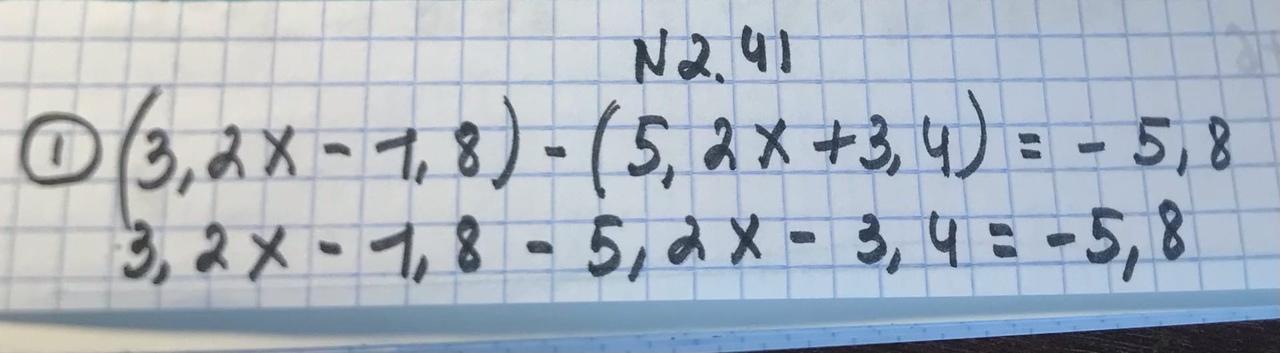 N2.41
① (3,2x - 1,8) - (5,2x + 3,4) = - 5,8
3,2x - 1,8 - 5,2x - 3,4 = -5,8